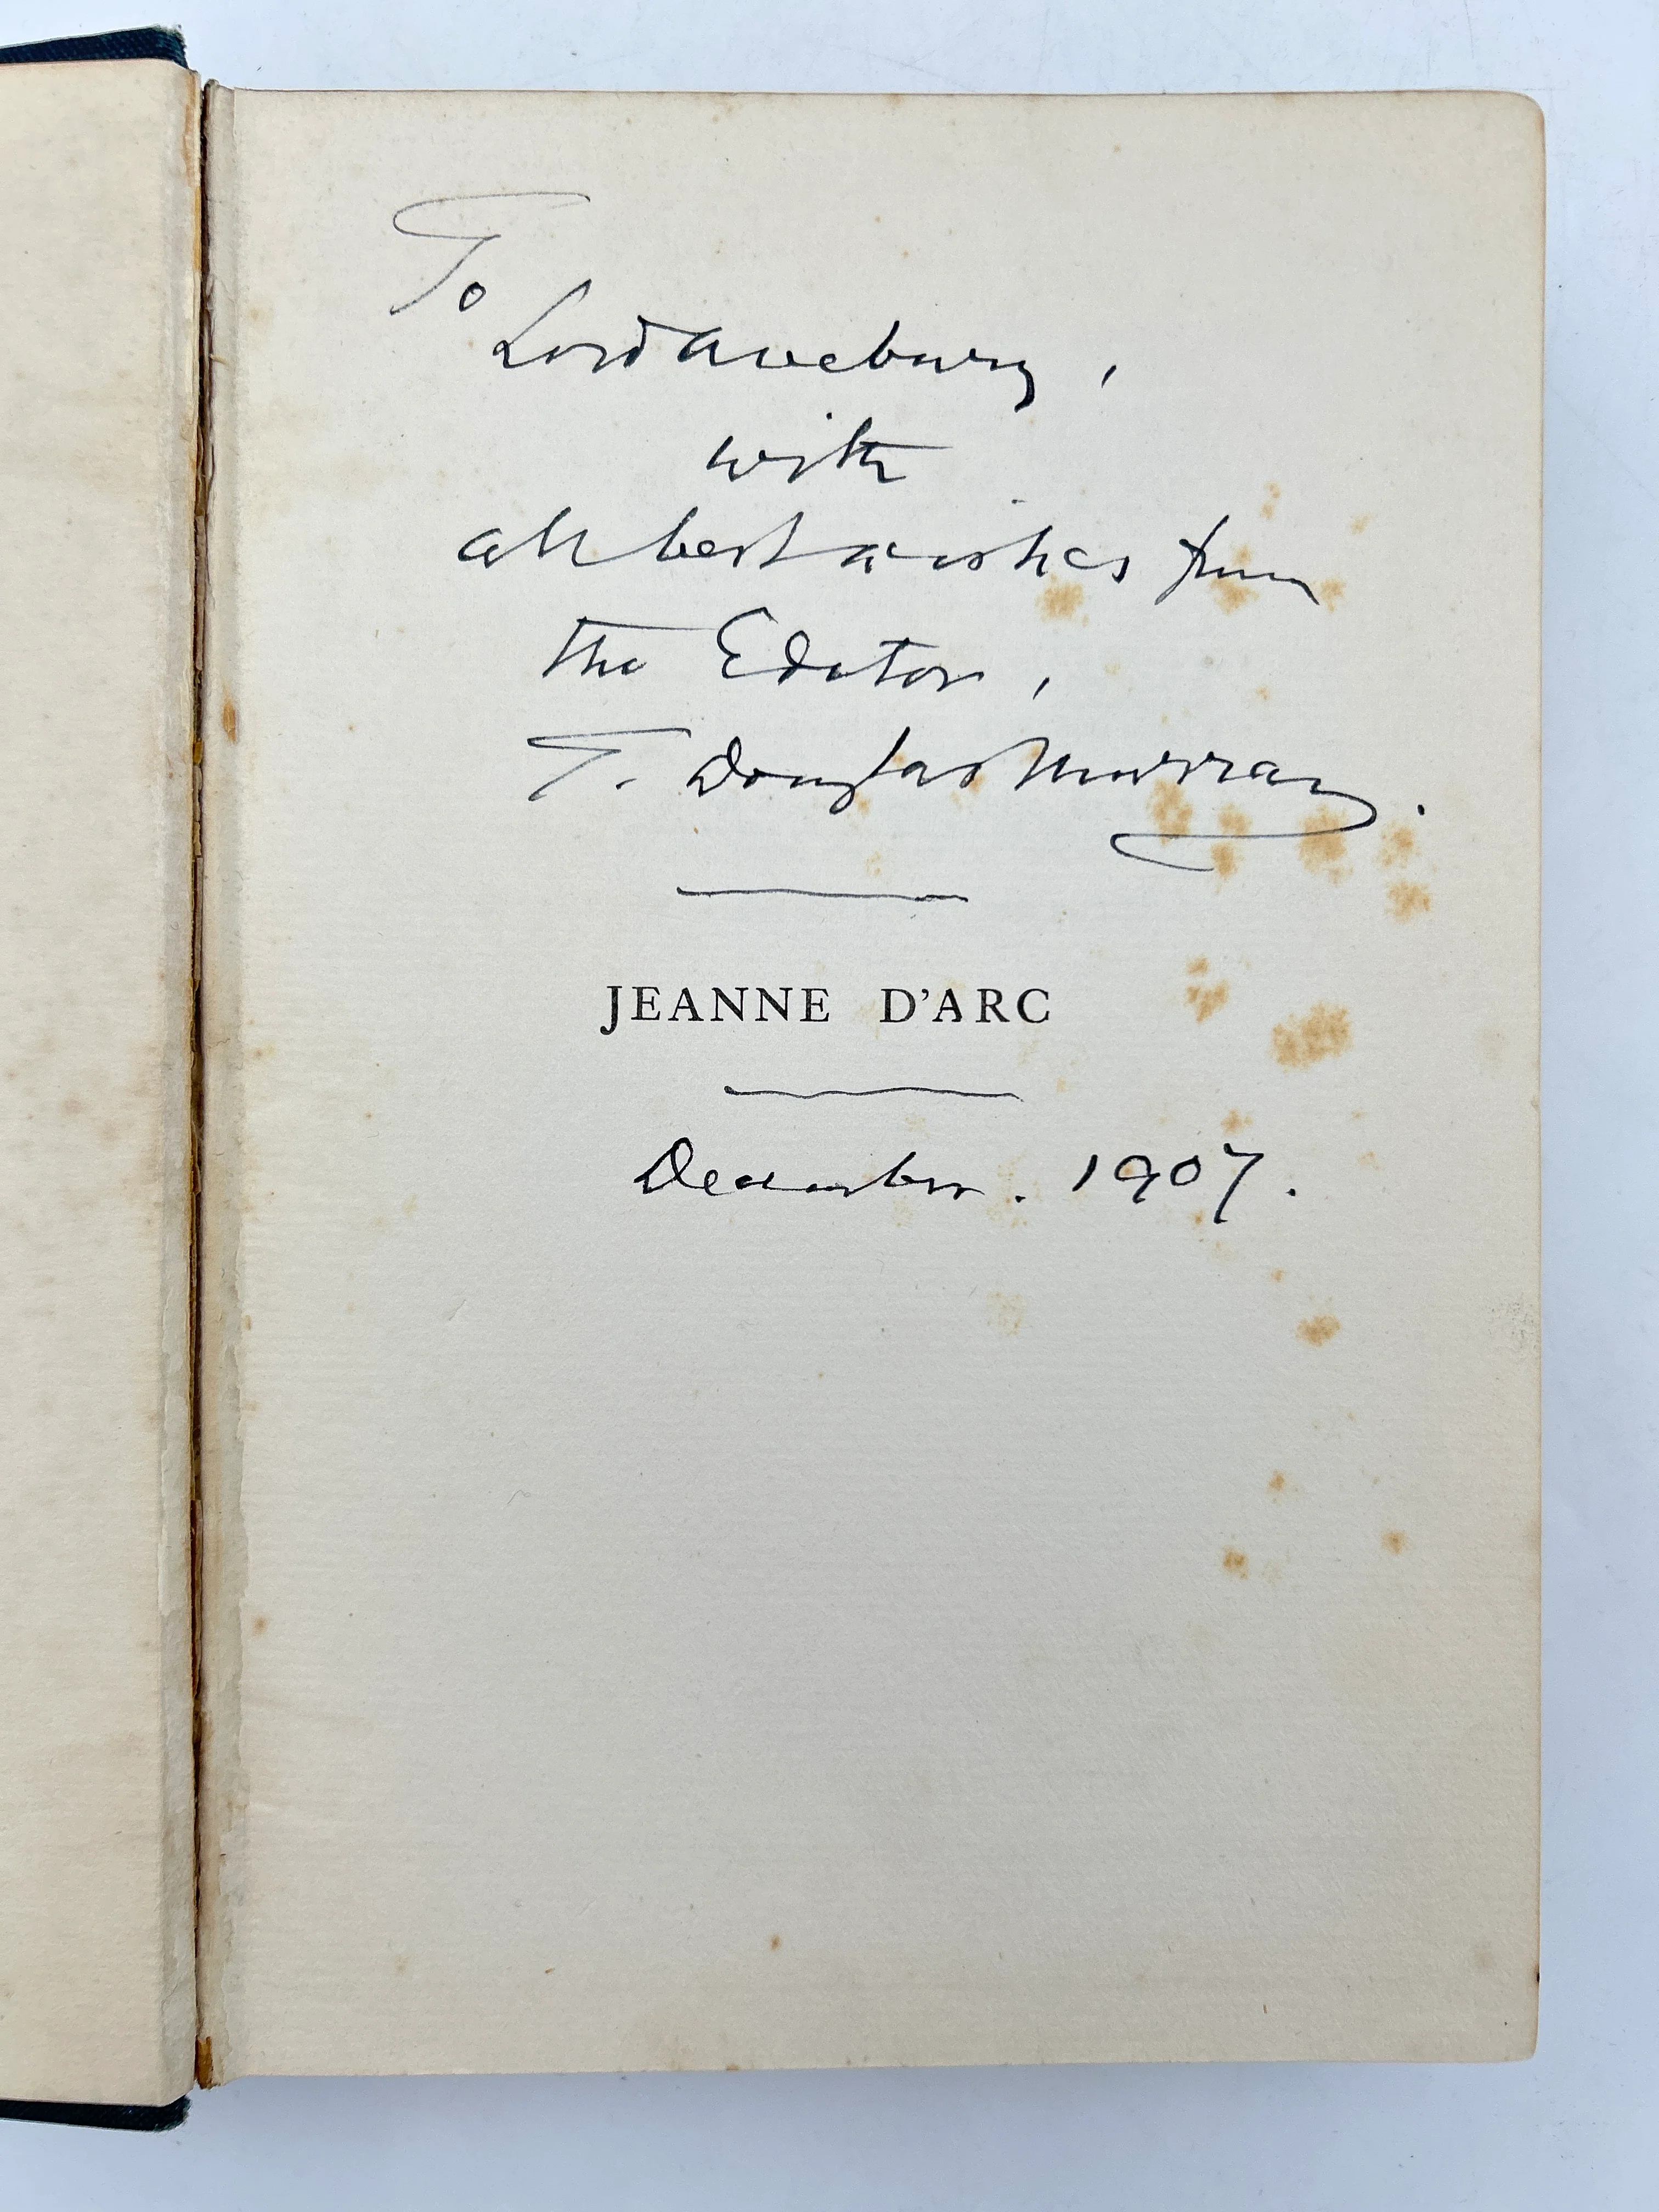 To
Lord Avebury,
with
all best wishes from
the Editor,
T. Douglas Murray.
JEANNE D'ARC
December. 1907.